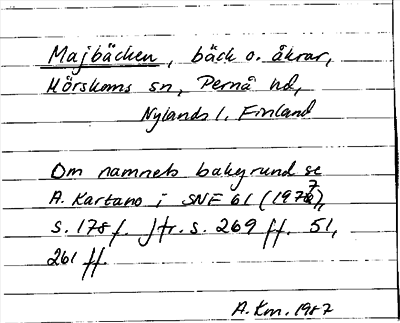 Majbäcken, bäck o. åkrar,
Mörskoms sn, Pernå hd,
Nylands l, Finland
Om namnets bakgrund se
A. Kartano i SNF 61 (1977),
s. 178 f. Jfr. s. 269 ff. 51,
261 ff.
A. Km. 1987